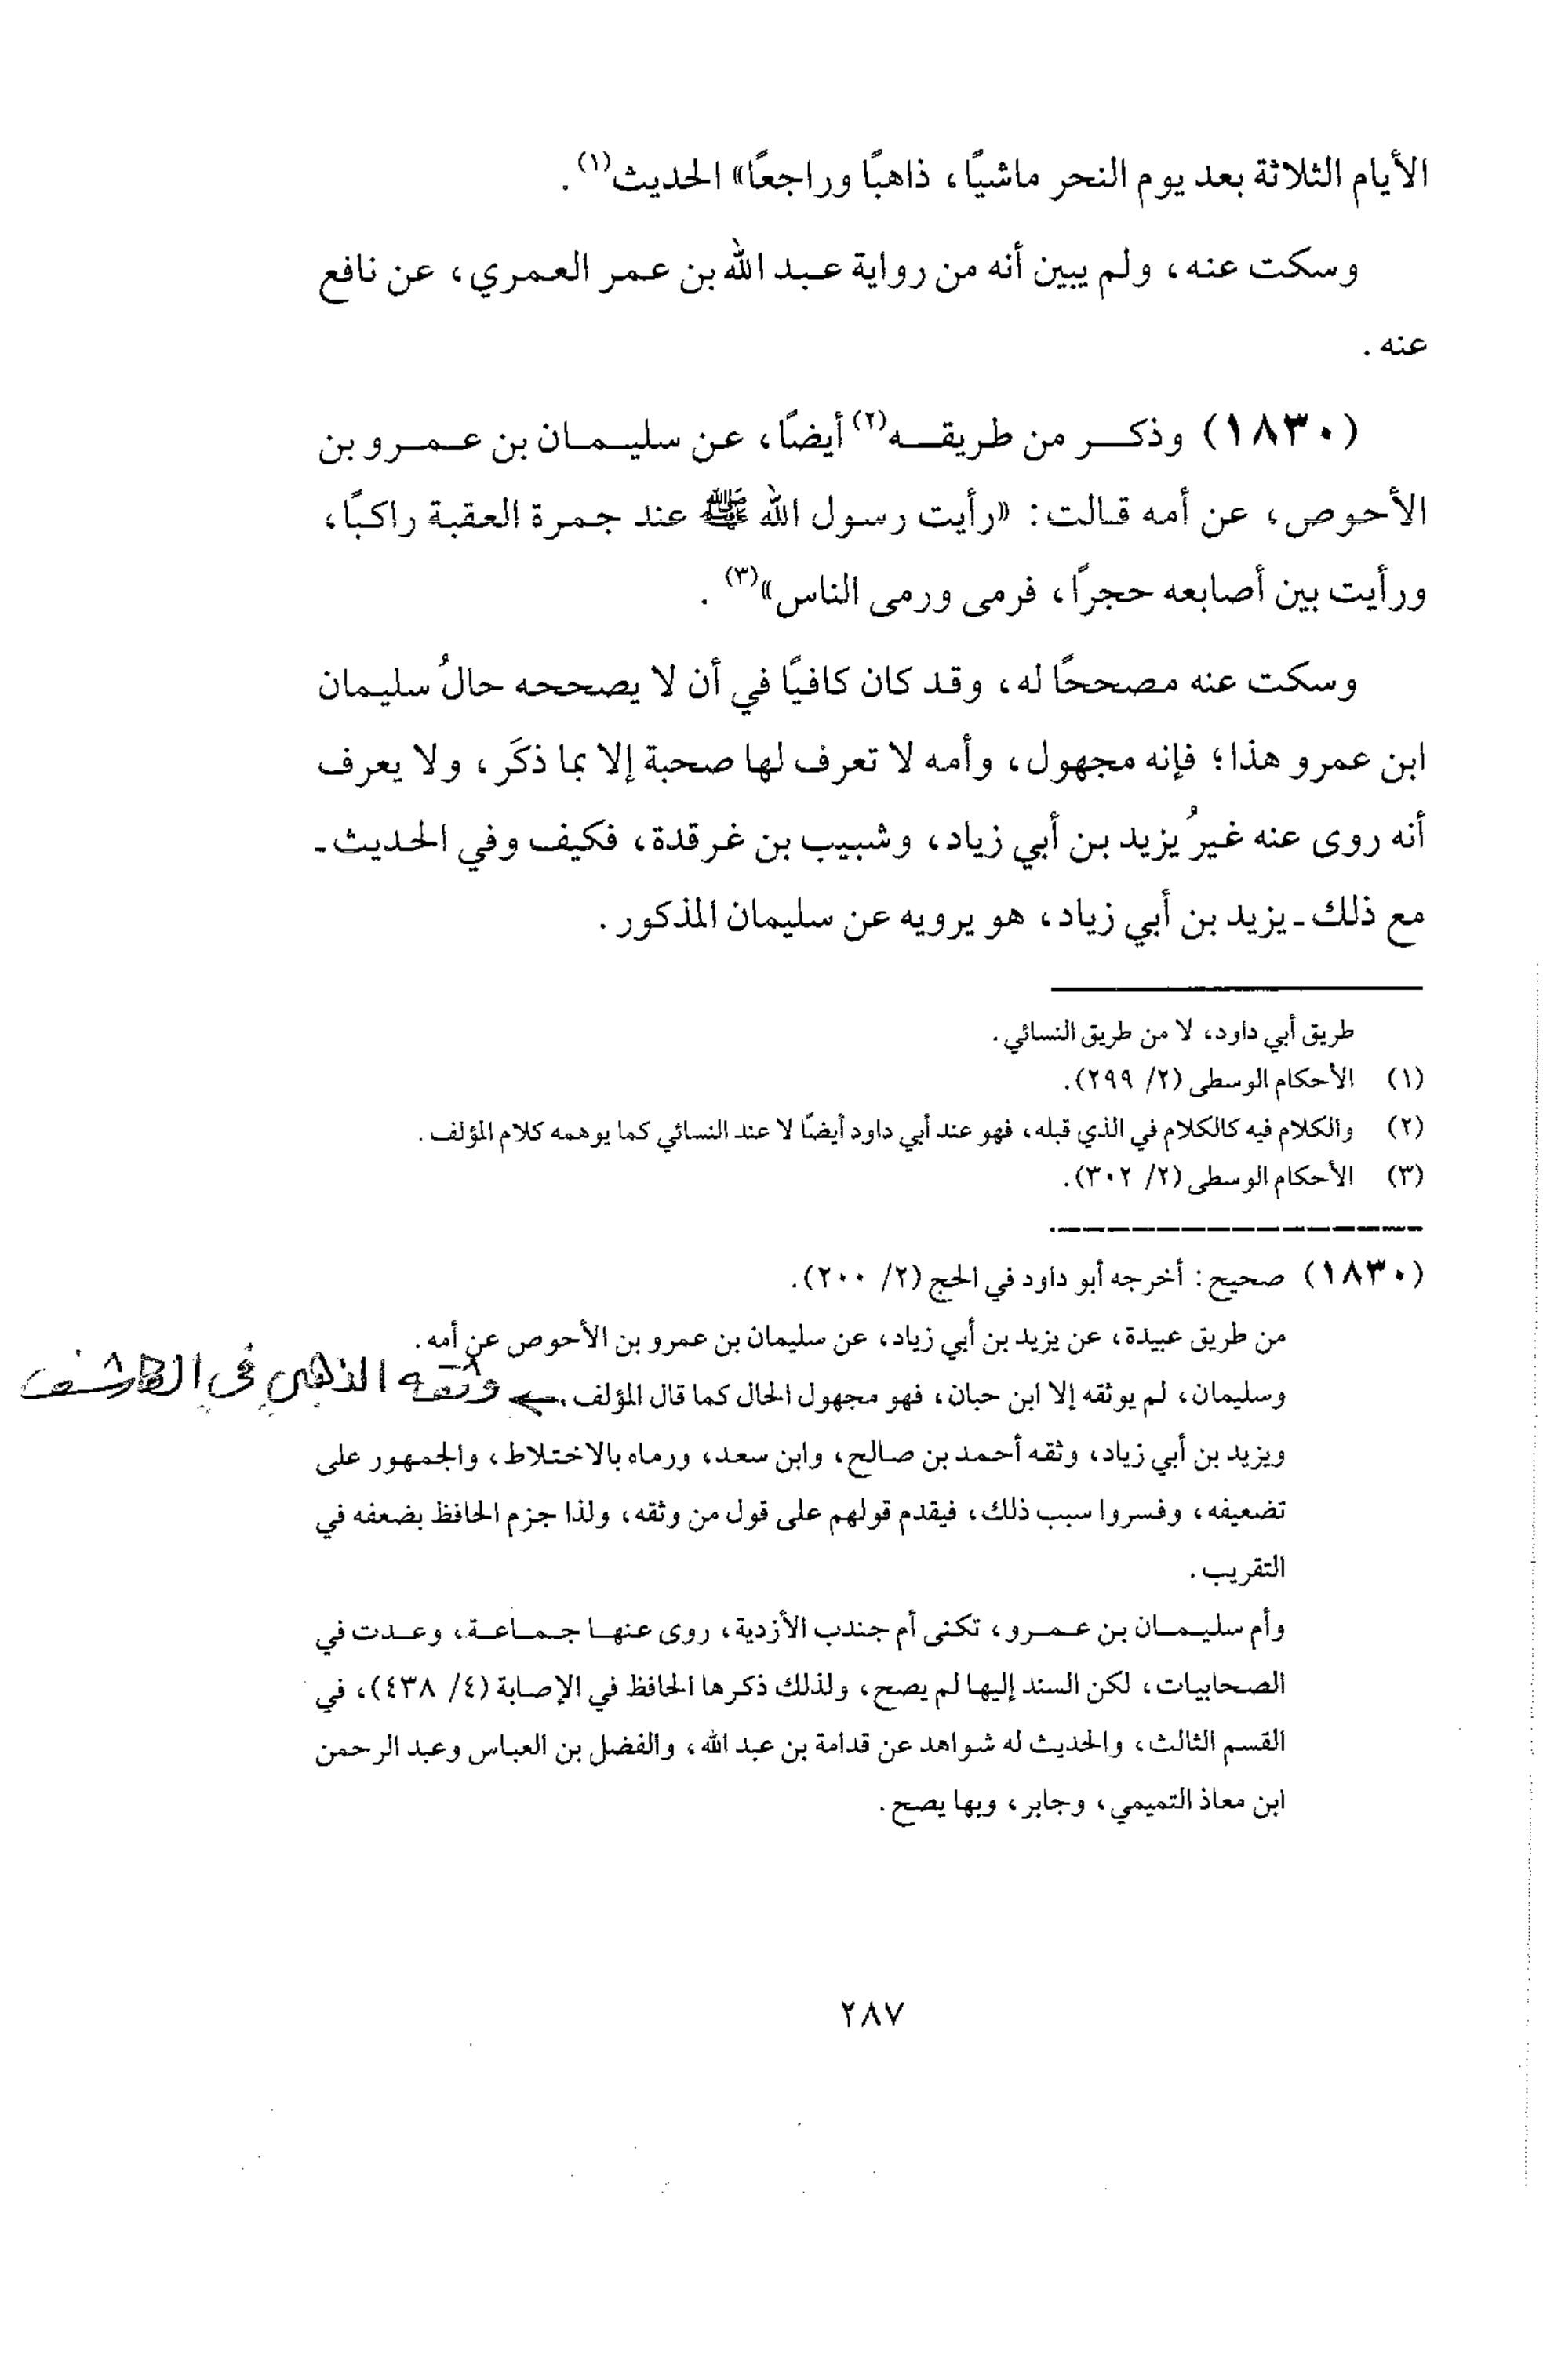 الأيام الثلاثة بعد يوم النحر ماشيًا، ذاهبًا وراجعًا» الحديث(١).
وسكت عنه، ولم يبين أنه من رواية عبد الله بن عمر العمري، عن نافع
عنه.
(١٨٣٠) وذكر من طريقه(٢) أيضًا، عن سليمان بن عمرو بن
الأحوص، عن أمه قالت: «رأيت رسول الله ﷺ عند جمرة العقبة راكبًا،
ورأيت بين أصابعه حجرًا، فرمى ورمى الناس»(٣).
وسكت عنه مصححًا له، وقد كان كافيًا في أن لا يصححه حالُ سليمان
ابن عمرو هذا؛ فإنه مجهول، وأمه لا تعرف لها صحبة إلا بما ذكَر، ولا يعرف
أنه روى عنه غيرُ يزيد بن أبي زياد، وشبيب بن غرقدة، فكيف وفي الحديث ـ
مع ذلك ـ يزيد بن أبي زياد، هو يرويه عن سليمان المذكور.
طريق أبي داود، لا من طريق النسائي.
(١) الأحكام الوسطى (٢/ ٢٩٩).
(٢) والكلام فيه كالكلام في الذي قبله، فهو عند أبي داود أيضًا لا عند النسائي كما يوهمه كلام المؤلف.
(٣) الأحكام الوسطى (٢/ ٣٠٢).
(١٨٣٠) صحيح: أخرجه أبو داود في الحج (٢/ ٢٠٠).
من طريق عبيدة، عن يزيد بن أبي زياد، عن سليمان بن عمرو بن الأحوص عن أمه.
وسليمان، لم يوثقه إلا ابن حبان، فهو مجهول الحال كما قال المؤلف. ← وثقه الذهبي في الكاشف
ويزيد بن أبي زياد، وثقه أحمد بن صالح، وابن سعد، ورماه بالاختلاط، والجمهور على
تضعيفه، وفسروا سبب ذلك، فيقدم قولهم على قول من وثقه، ولذا جزم الحافظ بضعفه في
التقريب.
وأم سليمان بن عمرو، تكنى أم جندب الأزدية، روى عنها جماعة، وعدت في
الصحابيات، لكن السند إليها لم يصح، ولذلك ذكرها الحافظ في الإصابة (٤/ ٤٣٨)، في
القسم الثالث، والحديث له شواهد عن قدامة بن عبد الله، والفضل بن العباس وعبد الرحمن
ابن معاذ التميمي، وجابر، وبها يصح.
٢٨٧